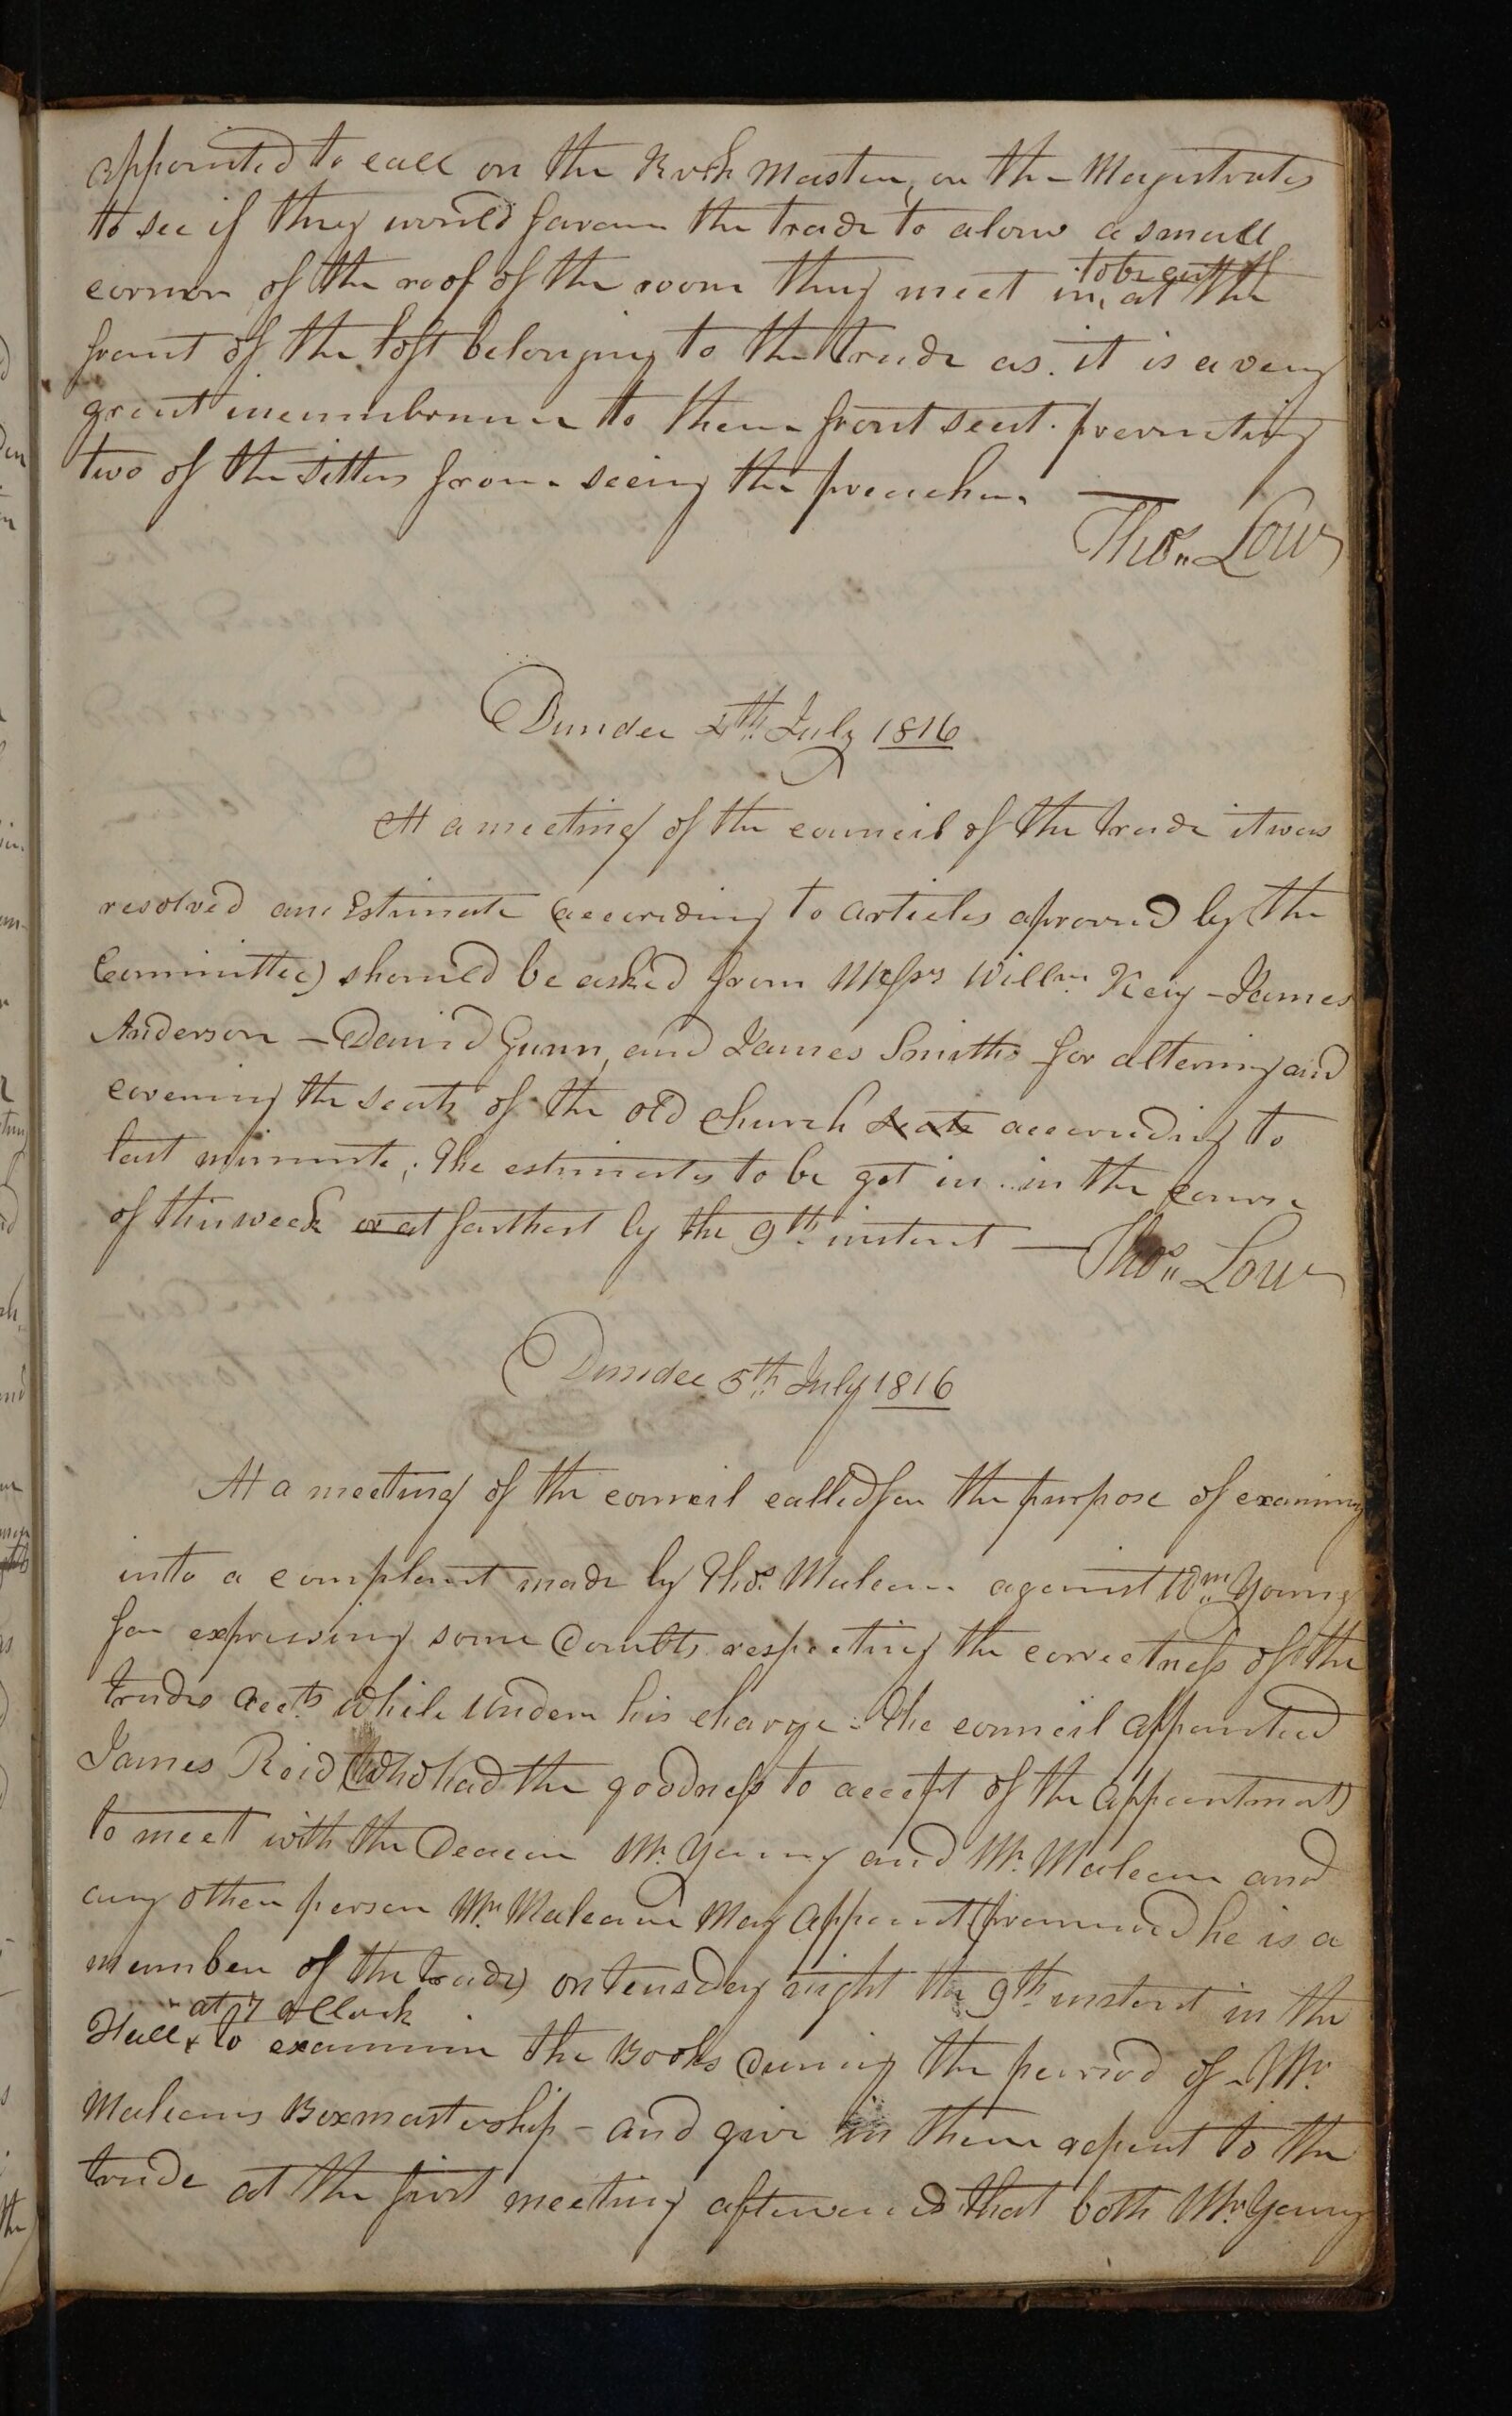 appointed to call on the Kirk Master, or the Magistrates
to see if they would favour the trade to alow a small
corner of the roof of the room they meet in, at the
to be cut off
frount of the loft belonging to the trade as it is a very
great incumbrance to there front seat. preventing
two of the sitters from seeing the preacher.
Thos. Low
Dundee 4th July 1816
At a meeting of the council of the trade it was
resolved an Estimate (according to articles aproved by the
Committee) should be asked from Messrs Willm. Key - James
Anderson - David Gunn, and James Smiths for altering and
covering the seats of the old church seats according to
last minute; The estimates to be got in in the course
of this week or at farthest by the 9th instant — Thos. Low
Dundee 5th July 1816
At a meeting of the council called for the purpose of examining
into a complaint made by Thos. Malcam against Wm. Young
for expressing some doubts respecting the correctness of the
trades acets. while under his charge. The council appointed
James Reid (who had the goodness to accept of the appointment)
to meet with the Deacon Mr. Young and Mr. Malcam and
any other person Mr. Malcam May appoint (provided he is a
member of the trade) on Teusday night the 9th instant in the
at 7 o Clock
Hall x to examine the Books during the period of Mr.
Malcams Boxmastership - and give in there report to the
trade at the first meeting afterwards that both Mr. Young